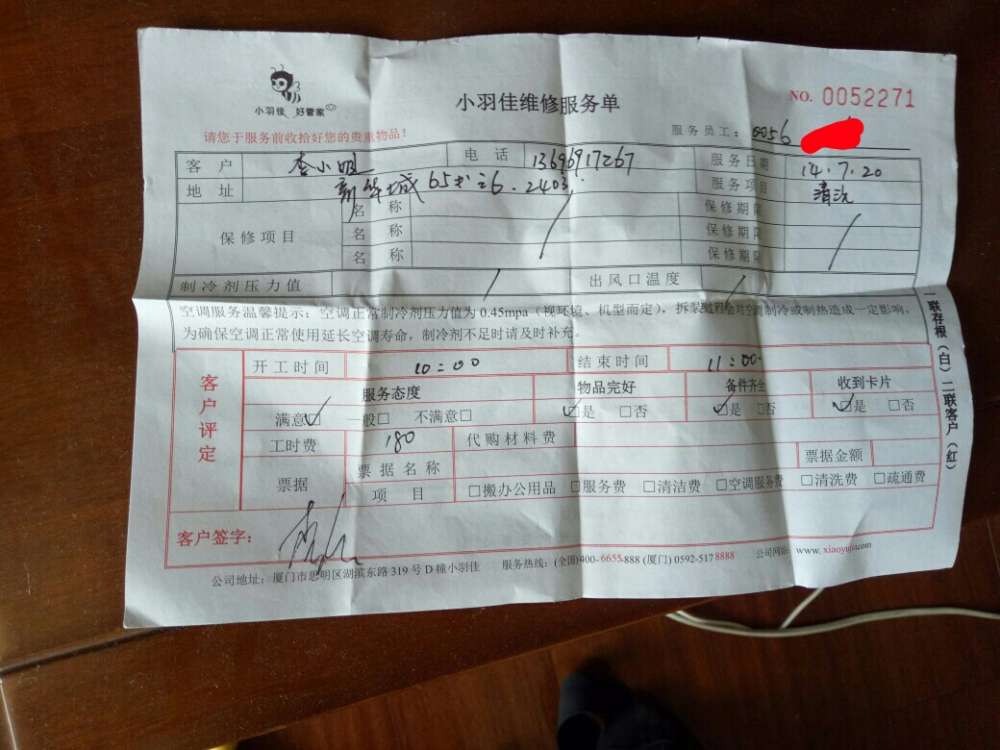 小羽佳 好管家
小羽佳维修服务单
NO. 0052271
请您于服务前收拾好您的贵重物品！
服务员工：0056
客户 李小姐 电话 13696917267 服务日期 14.7.20
地址 65 2403 服务项目 清洗
保修项目 名称 保修期限
名称 保修期限
名称 保修期限
制冷剂压力值 出风口温度
空调服务温馨提示：空调正常制冷剂压力值为 0.45mpa（视环境、机型而定），拆装 制冷或制热造成一定影响。
为确保空调正常使用延长空调寿命，制冷剂不足时请及时补充。
客户评定
开工时间 10:00 结束时间 11:00
服务态度 物品完好 备件齐全 收到卡片
满意☑ 一般□ 不满意□ ☑是 □否 ☑是 □否 ☑是 □否
工时费 180 代购材料费
票据 票据名称 票据金额
项目 □搬办公用品 □服务费 □清洁费 □空调服务费 □清洗费 □疏通费
客户签字：
公司地址：厦门市思明区湖滨东路 319 号 D 幢小羽佳 服务热线：(全国)400-6655-888 (厦门) 0592-5178888 公司网站：www.xiaoyujia.com
一联存根（白）二联客户（红）